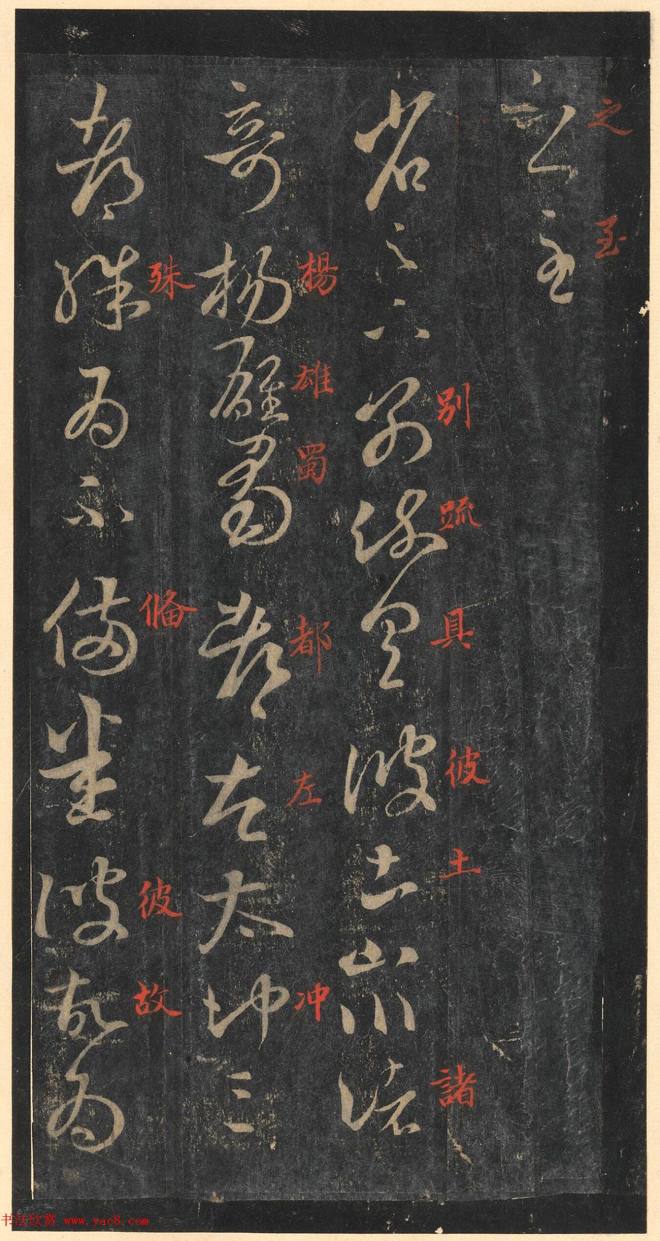 之至
之至
别疏具彼土諸
省足下別疏具彼土山川諸
楊雄蜀都左冲
奇楊雄蜀都左太冲三
殊俻彼故
都殊為不備悉彼故為
书法欣赏 www.yac8.com